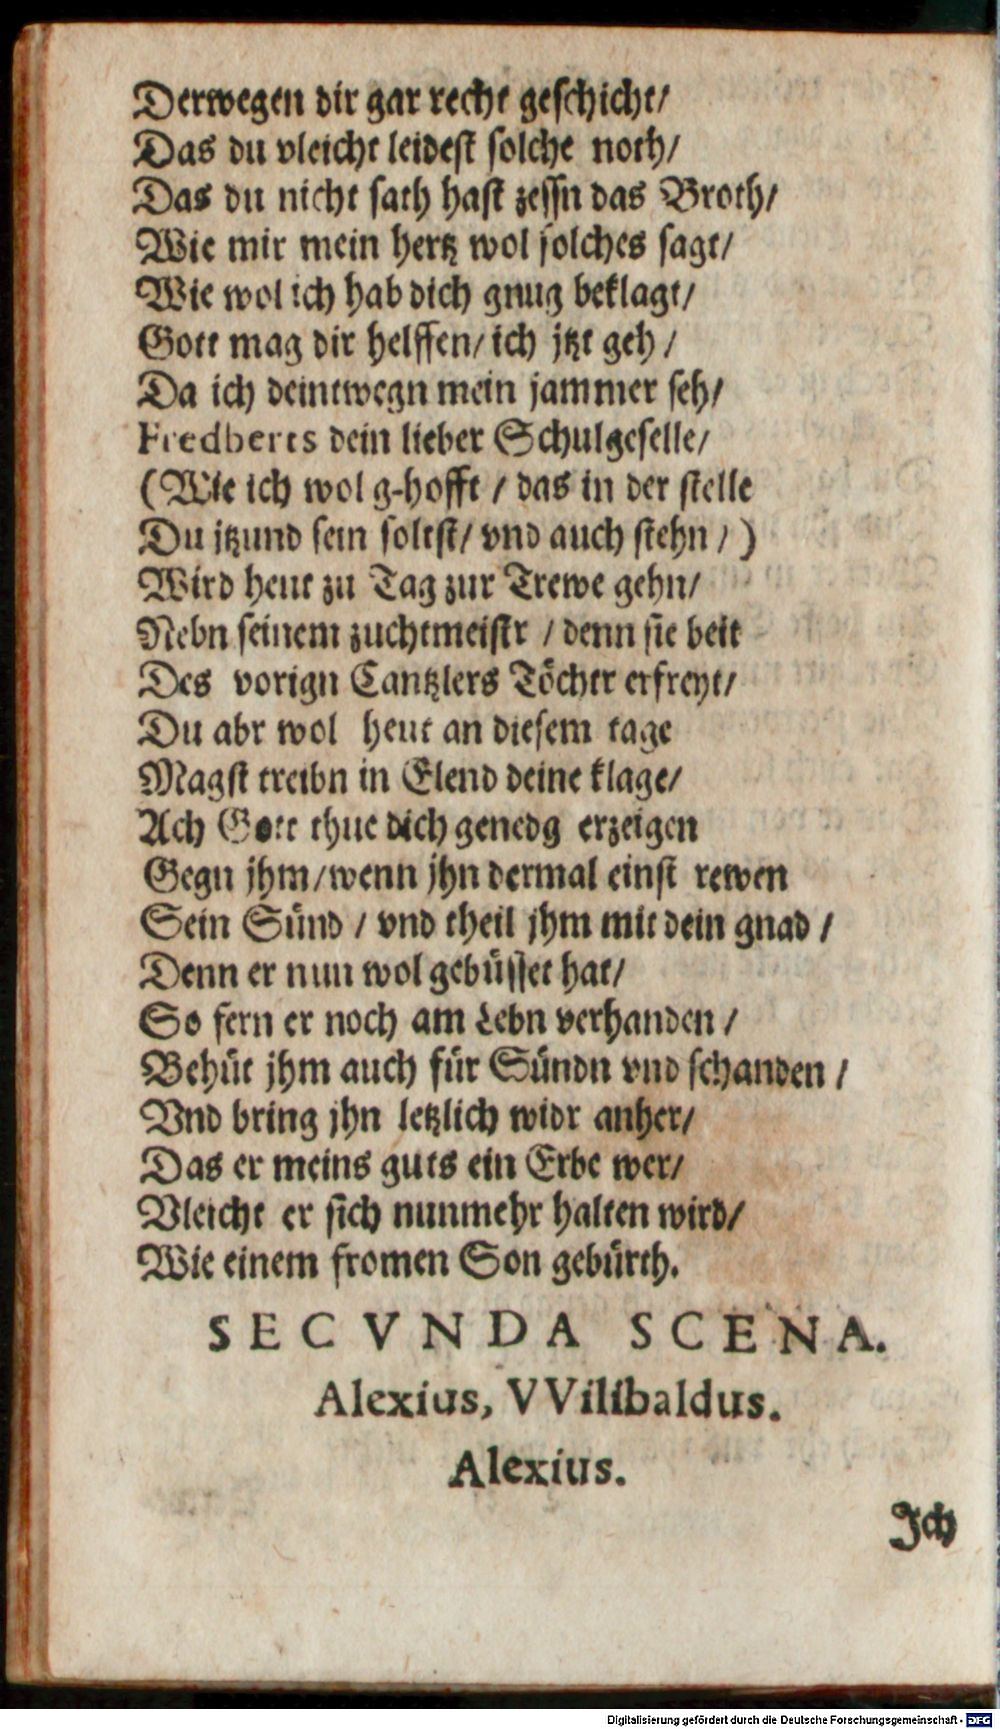 Derwegen dir gar recht geschicht/
Das du vleicht leidest solche noth/
Das du nicht sath hast zessn das Broth/
Wie mir mein hertz wol solches sagt/
Wie wol ich hab dich gnug beklagt/
Gott mag dir helffen/ ich jtzt geh /
Da ich deintwegn mein jammer seh/
Fredberts dein lieber Schulgeselle/
(Wie ich wol g-hofft / das in der stelle
Du jtzund sein soltst/ vnd auch stehn / )
Wird heut zu Tag zur Trewe gehn/
Nebn seinem zuchtmeistr / denn sie beit
Des vorign Cantzlers Töchtr erfreyt/
Du abr wol heut an diesem tage
Magst treibn in Elend deine klage/
Ach Gott thue dich genedg erzeigen
Gegn jhm/wenn jhn dermal einst rewen
Sein Sünd / vnd theil jhm mit dein gnad /
Denn er nun wol gebüsset hat/
So fern er noch am Lebn verhanden /
Behüt jhm auch für Sündn vnd schanden /
Vnd bring jhn letzlich widr anher/
Das er meins guts ein Erbe wer/
Vleicht er sich nunmehr halten wird/
Wie einem fromen Son gebürth.
SECVNDA SCENA.
Alexius, VVilibaldus.
Alexius.
Jch
Digitalisierung gefördert durch die Deutsche Forschungsgemeinschaft - DFG